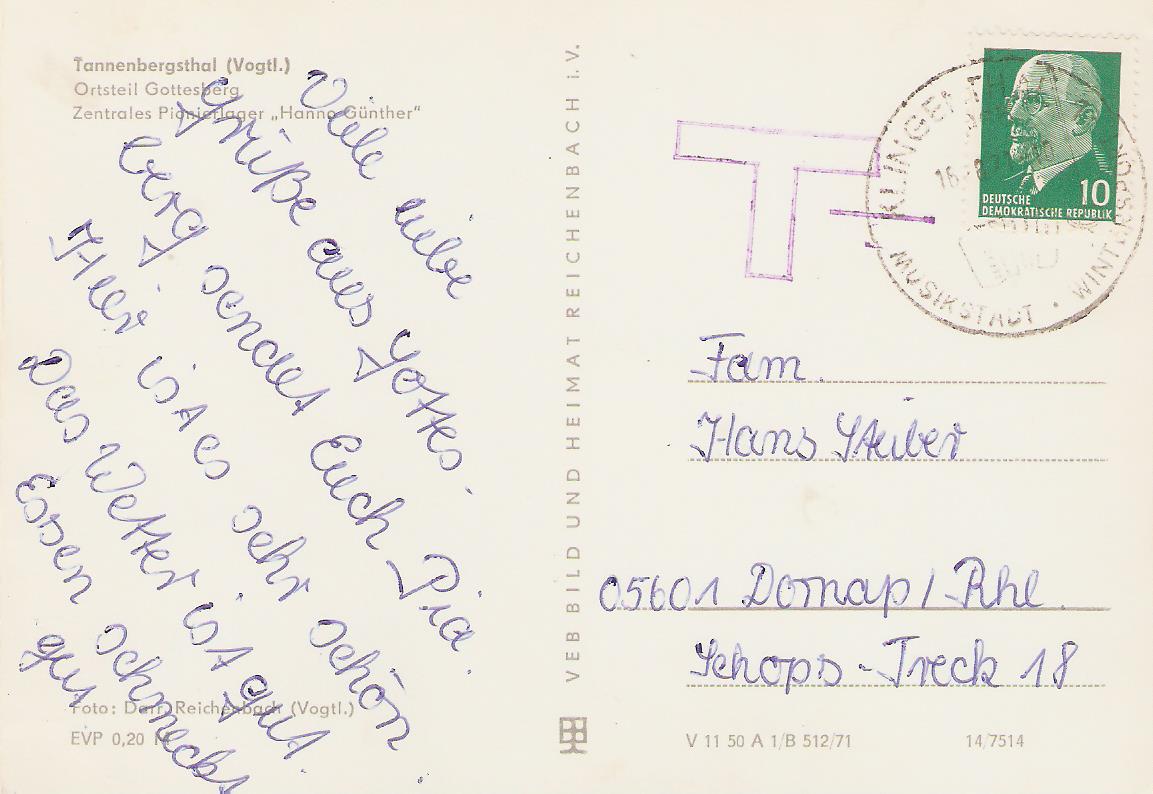 Tannenbergsthal (Vogtl.)
Ortsteil Gottesberg
Zentrales Pionierlager „Hanno Günther“
Viele liebe
Grüße aus Gottes-
berg sendet Euch Pia.
Hier ist es sehr schön.
Das Wetter ist gut.
Essen schmeckt
gut
Foto: Darr, Reichenbach (Vogtl.)
EVP 0,20 M
VEB BILD UND HEIMAT REICHENBACH i. V.
T
KLINGENTHAL
MUSIKSTADT · WINTERSPORT
10
DEUTSCHE
DEMOKRATISCHE REPUBLIK
Fam.
Hans Steiber
05601 Dornap / Rhl.
Schöps-Treck 18
V 11 50 A 1/B 512/71
14/7514